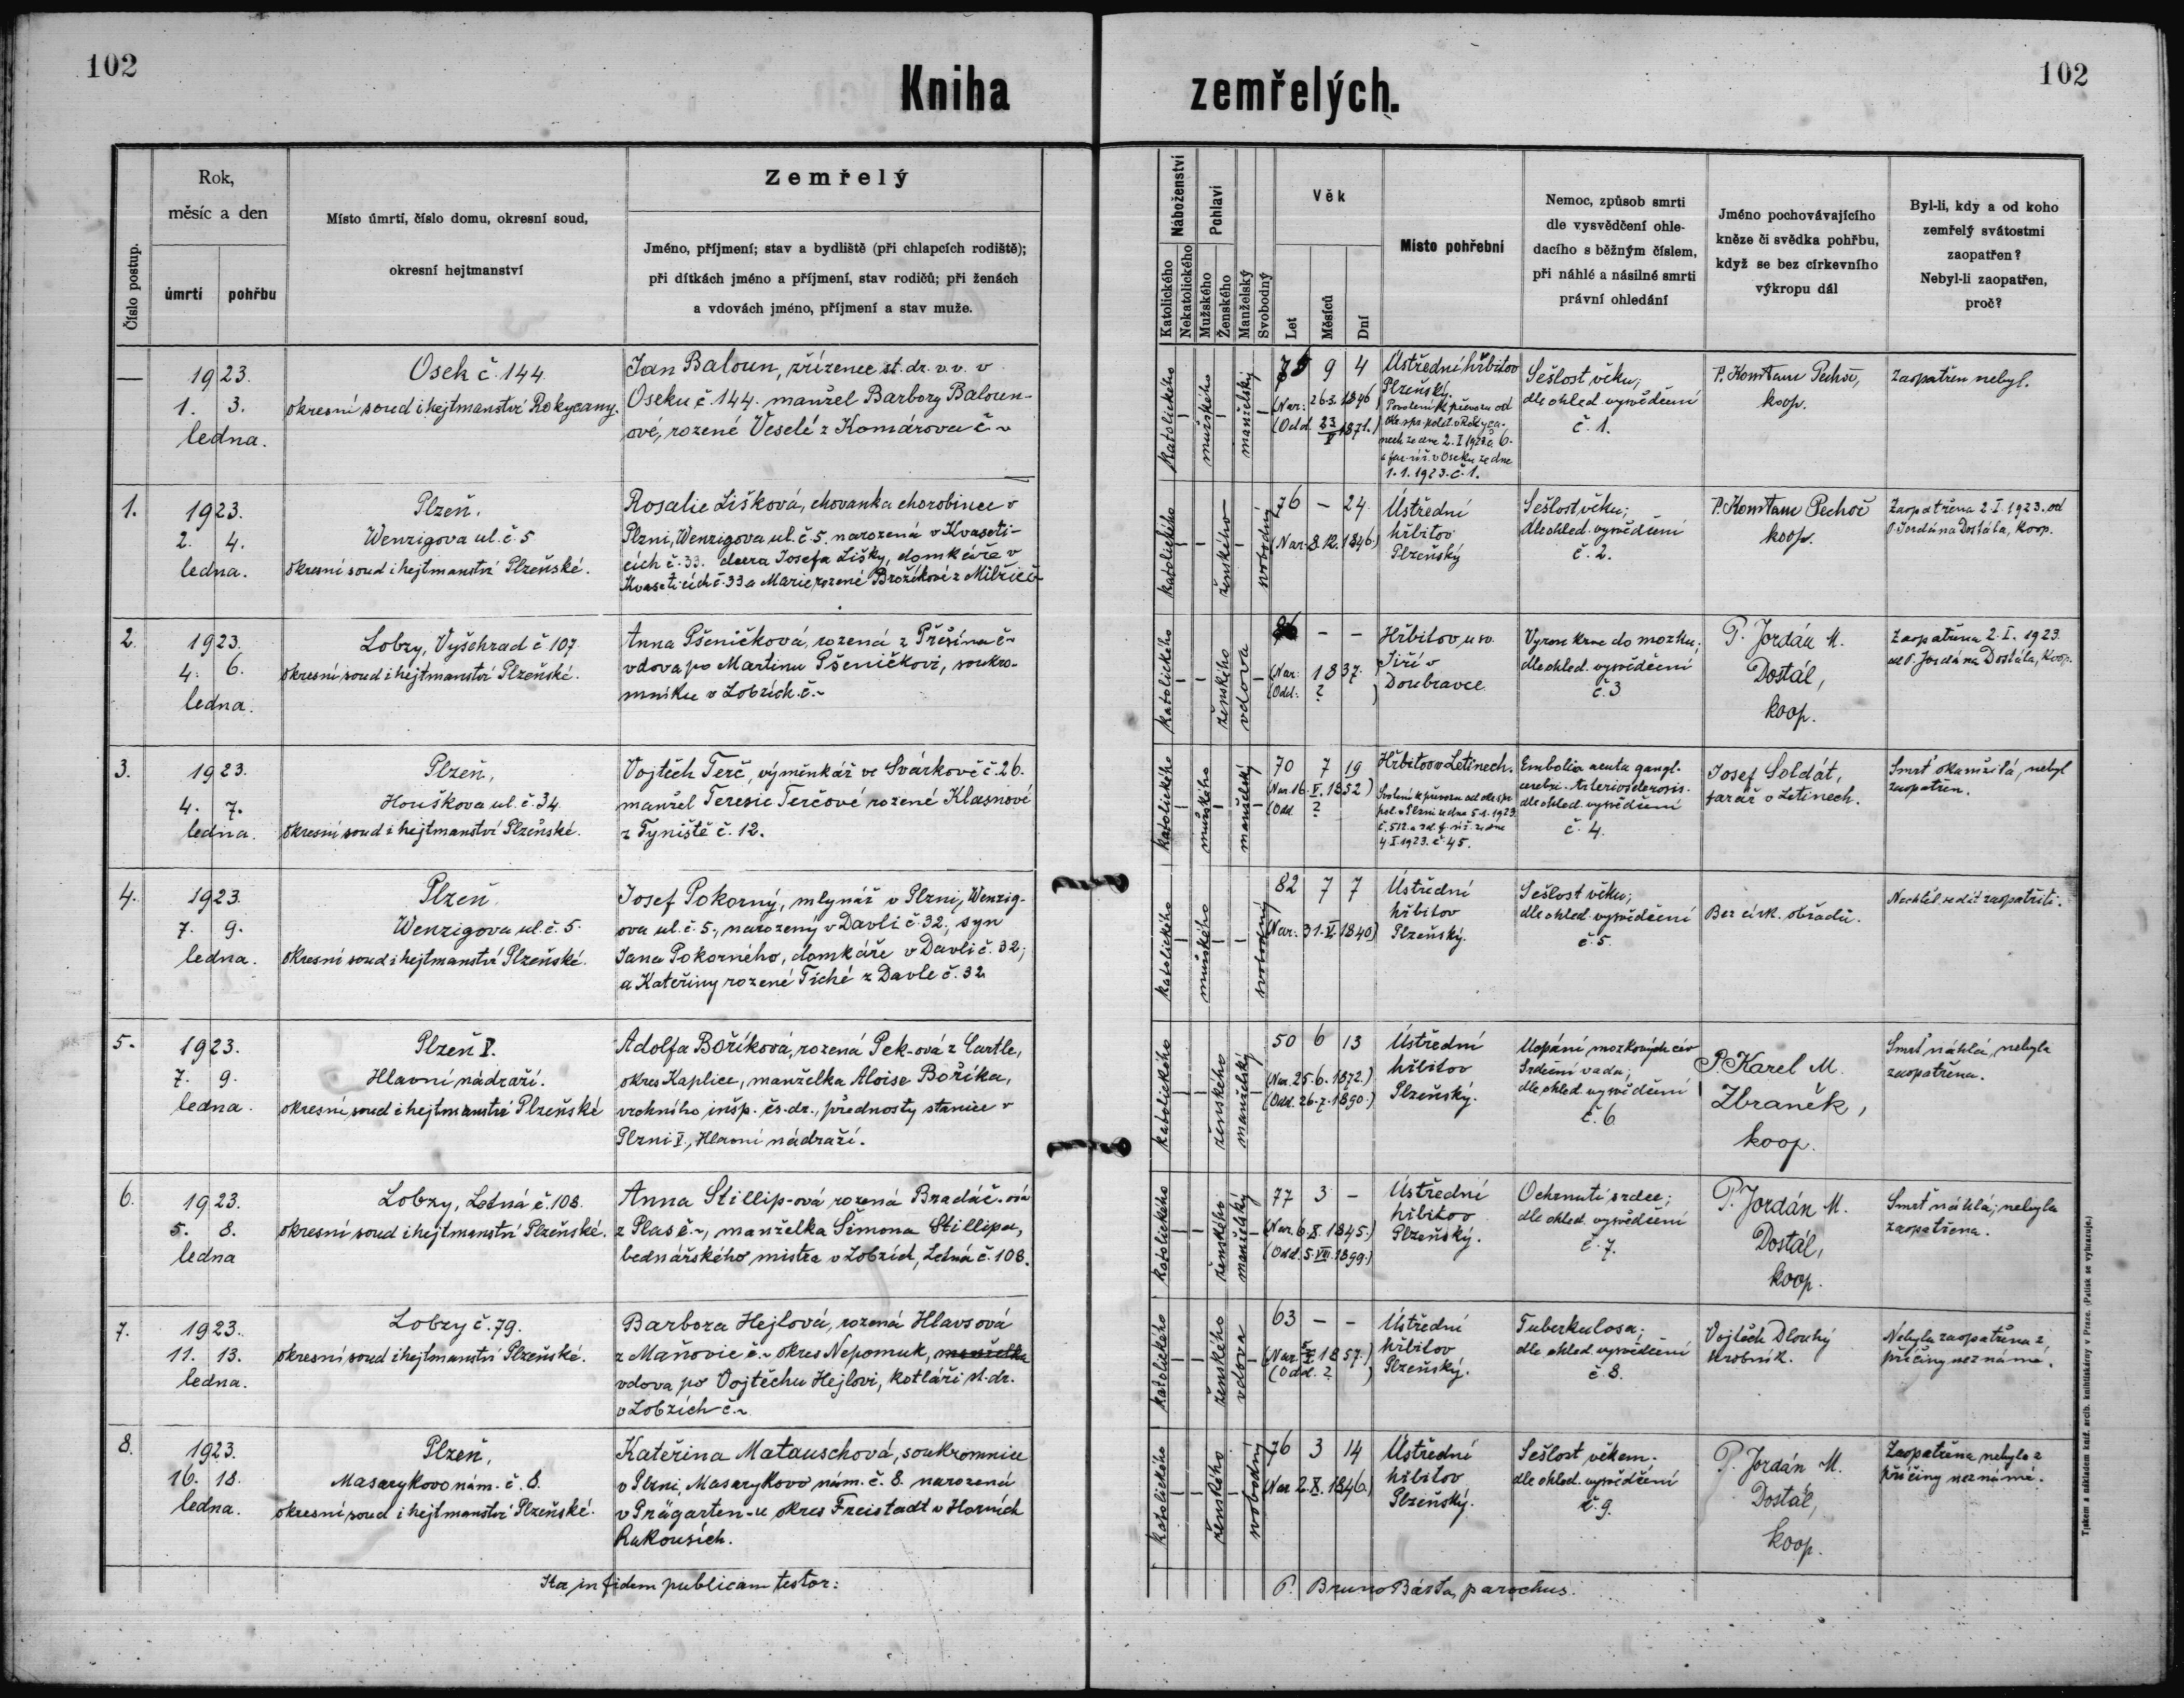 102
Kniha zemřelých.
102
Číslo postup.
Rok,
měsíc a den
úmrtí
pohřbu
Místo úmrtí, číslo domu, okresní soud,
okresní hejtmanství
Zemřelý
Jméno, příjmení; stav a bydliště (při chlapcích rodiště);
při dítkách jméno a příjmení, stav rodičů; při ženách
a vdovách jméno, příjmení a stav muže.
Náboženství
Katolického
Nekatolického
Pohlaví
Mužského
Ženského
Manželský
Svobodný
Věk
Let
Měsíců
Dní
Místo pohřební
Nemoc, způsob smrti
dle vysvědčení ohle-
dacího s běžným číslem,
při náhlé a násilné smrti
právní ohledání
Jméno pochovávajícího
kněze či svědka pohřbu,
když se bez církevního
výkropu dál
Byl-li, kdy a od koho
zemřelý svátostmi
zaopatřen?
Nebyl-li zaopatřen,
proč?
—
1923.
1. 3.
ledna.
Osek č. 144
okresní soud i hejtmanství Rokycany.
Jan Baloun, zřízenec st. dr. v. v. v
Oseku č. 144. manžel Barbory Baloun-
ové, rozené Veselé z Komárova č. ~
katolického
–
mužského
–
manželský
–
9 4
(Nar. 26.3. 1846)
(Odd. 23/V 1871.)
Ústřední hřbitov
Plzeňský.
Povolení k převozu od
Oke. spr. polit. v Rokyca-
nech ze dne 2. I 1923 č. 6.
a far. úř. v Oseku ze dne
1. 1. 1923. č. 1.
Sešlost věku,
dle ohled. vysvědčení
č. 1.
P. Konstanc Pechoč,
koop.
Zaopatřen nebyl.
1.
1923.
2. 4.
ledna.
Plzeň.
Wenzigova ul. č. 5
okresní soud i hejtmanství Plzeňské.
Rosalie Lišková, chovanka chorobince v
Plzni, Wenzigova ul. č. 5, narozená v Kvaseti-
cích č. 33. dcera Josefa Lišky, domkáře v
Kvaseticích č. 33 a Marie, rozené Brožíkové z Milčic č.
katolického
–
–
ženského
–
svobodný
76 – 24
(Nar. 8. 12. 1846.)
Ústřední
hřbitov
Plzeňský
Sešlost věku;
dle ohled. vysvědčení
č. 2.
P. Konstanc Pechoč
koop.
Zaopatřena 2. I. 1923. od
P. Jordána Dostála, koop.
2.
1923.
4. 6.
ledna.
Lobzy, Vyšehrad č 107
okresní soud i hejtmanství Plzeňské.
Anna Pšeničková, rozená z Přešína č ~
vdova po Martinu Pšeničkovi, soukro-
mníku v Lobzích č. ~
katolického
–
–
ženského
vdova
–
– –
(Nar. 1837.
(Odd. ? )
Hřbitov u sv.
Jiří v
Doubravce.
Výron krve do mozku;
dle ohled. vysvědčení
č. 3
P. Jordán M.
Dostál,
koop.
Zaopatřena 2. I. 1923.
od P. Jordána Dostála, Koop.
3.
1923.
4. 7.
ledna.
Plzeň,
Houškova ul. č. 34
okresní soud i hejtmanství Plzeňské.
Vojtěch Terč, výměnkář ve Svárkově č. 26.
manžel Terezie Terčové rozené Klasnové
z Týniště č. 12.
katolického
–
mužského
–
manželský
–
70 7 19
(Nar. 16. V. 1852)
(Odd. ?
Hřbitov v Letinech.
Svolení k převozu od oke. spr.
pol. v Plzni ze dne 5. 1. 1923.
č. 512. a od f. úř. ze dne
4. I. 1923. č. 45.
Embolia acuta gangl.
cerebri. Arteriosclerosis.
dle ohled. vysvědčení
č. 4.
Josef Soldát,
farář v Letinech.
Smrt okamžitá, nebyl
zaopatřen.
4.
1923.
7. 9.
ledna.
Plzeň
Wenzigova ul. č. 5.
okresní soud i hejtmanství Plzeňské.
Josef Pokorný, mlynář v Plzni, Wenzig-
ova ul. č. 5., narozený v Davli č. 32., syn
Jana Pokorného, domkáře v Davli č. 32;
a Kateřiny rozené Tiché z Davle č. 32
katolického
–
mužského
–
–
svobodný
82 7 7
(Nar. 31. V. 1840)
Ústřední
hřbitov
Plzeňský.
Sešlost věku;
dle ohled. vysvědčení
č. 5.
Bez círk. obřadů.
Nechtěl se dát zaopatřiti.
5.
1923.
7. 9.
ledna.
Plzeň V.
Hlavní nádraží.
okresní soud i hejtmanství Plzeňské
Adolfa Boříková, rozená Pek-ová z Cartle,
okres Kaplice, manželka Aloise Boříka,
vrchního insp. čs. dr., přednosty stanice v
Plzni V., Hlavní nádraží.
katolického
–
–
ženského
manželský
–
50 6 13
(Nar. 25. 6. 1872.)
(Odd. 26. 7. 1890.)
Ústřední
hřbitov
Plzeňský.
Ucpání mozkových cév
Srdeční vada;
dle ohled. vysvědčení
č. 6
P. Karel M.
Zbraněk,
koop.
Smrt náhlá, nebyla
zaopatřena.
6.
1923.
5. 8.
ledna
Lobzy, Letná č. 108.
okresní soud i hejtmanství Plzeňské.
Anna Stillip-ová rozená Bradáč-ová
z Plas č ~, manželka Šimona Stillipa,
bednářského mistra v Lobzích, Letná č. 108.
katolického
–
–
ženského
manželský
–
77 3 –
(Nar. 6. X. 1845.)
(Odd. 5. VII. 1899.)
Ústřední
hřbitov
Plzeňský.
Ochrnutí srdce;
dle ohled. vysvědčení
č. 7.
P. Jordán M.
Dostál,
koop.
Smrt náhlá; nebyla
zaopatřena.
7.
1923.
11. 13.
ledna.
Lobzy č. 79.
okresní soud i hejtmanství Plzeňské.
Barbora Hejlová, rozená Hlavsová
z Maňovic č. ~ okres Nepomuk, manželka
vdova po Vojtěchu Hejlovi, kotláři st. dr.
v Lobzích č. ~
katolického
–
–
ženského
vdova
–
63 – –
1857.)
(Odd. ? )
Ústřední
hřbitov
Plzeňský.
Tuberkulosa;
dle ohled. vysvědčení
č. 8.
Vojtěch Dlouhý
hrobník.
Nebyla zaopatřena z
příčiny neznámé.
8.
1923.
16. 18.
ledna.
Plzeň,
Masarykovo nám. č. 8.
okresní soud i hejtmanství Plzeňské.
Kateřina Matauschová, soukromnice
v Plzni, Masarykovo nám. č. 8. narozená
v Prägarten-u okres Freistadt v Horních
Rakousích.
katolického
–
–
ženského
–
svobodný
76 3 14
(Nar. 2. X. 1846.)
Ústřední
hřbitov
Plzeňský.
Sešlost věkem.
dle ohled. vysvědčení
č. 9.
P. Jordán M.
Dostál,
koop.
Zaopatřena nebyla z
příčiny neznámé.
Ita in fidem publicam testor:
P. Bruno Bárta, parochus.
Tiskem a nákladem kníž. arcib. knihtiskárny v Praze. (Patisk se vyhrazuje.)